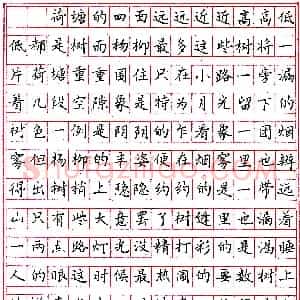 荷塘的四面远远近近高高低
低都是树而杨柳最多这些树将一
片荷塘重重围住只在小路一旁漏
着几段空隙象是特为月光留下的
树色一例是阴阴的乍看象一团烟
雾但杨柳的丰姿便在烟雾里也辨
得出树梢上隐隐约约的是一带远
山只有些大意罢了树缝里也漏着
一两点路灯光没精打彩的是渴睡
人的眼这时候最热闹的要数树上